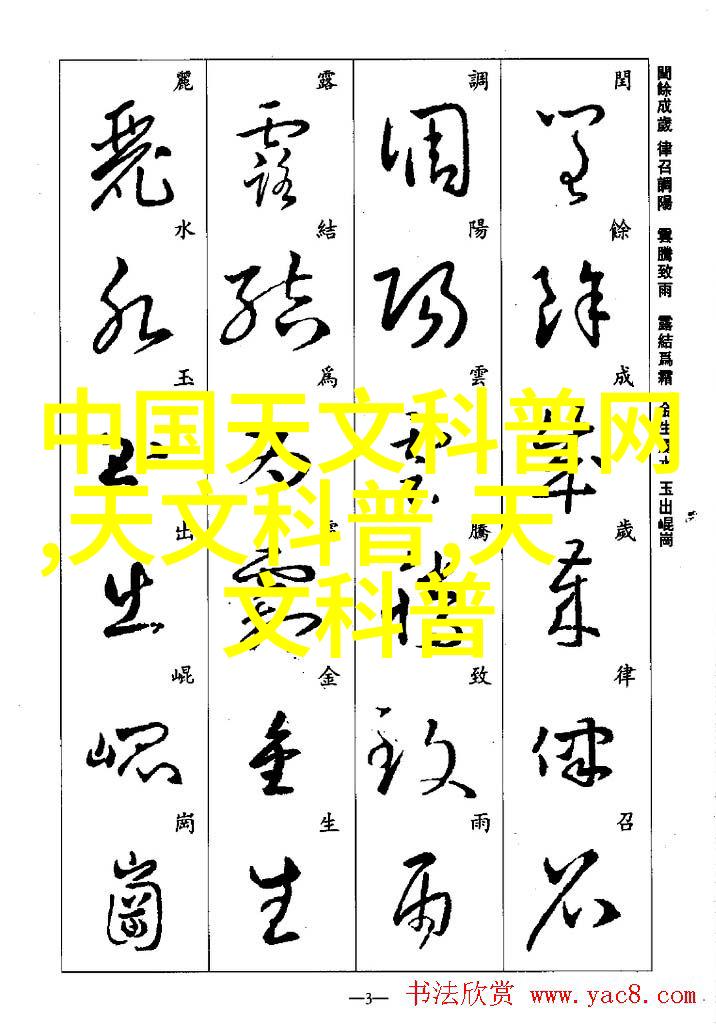 閏餘成歲 律召調陽 雲騰致雨 露結爲霜 金生麗水 玉出崐崗
閏 餘 成 歲 律 召
調 陽 雲 騰 致 雨
露 結 爲 霜 金 生
麗 水 玉 出 崐 崗
中国天文科普网
,天文科普,天
文科普
—3—
书法欣赏 www.yac8.com